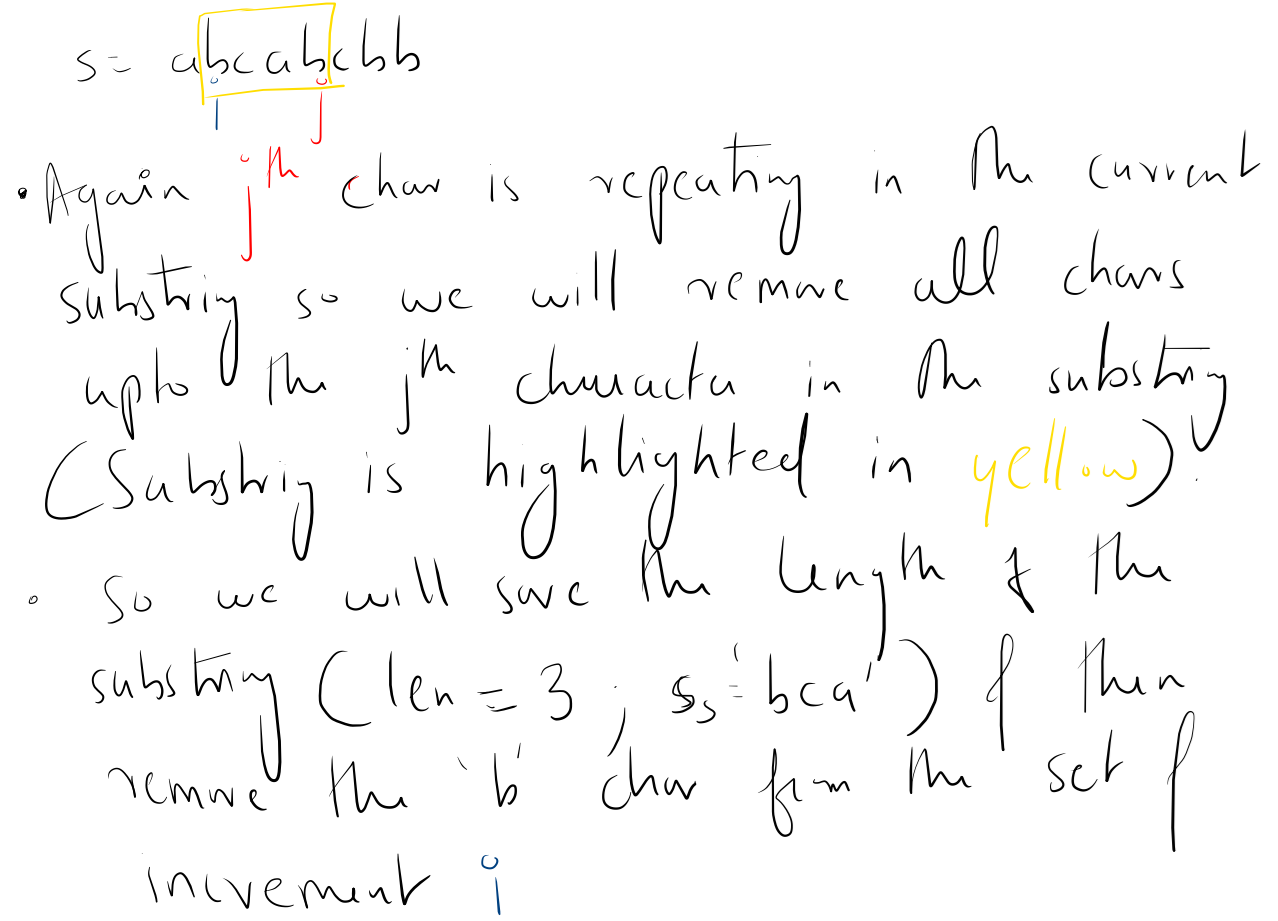 s= abcabcbb
i j
• Again jth char is repeating in the current
substring so we will remove all chars
upto the jth character in the substring
(Substring is highlighted in yellow).
• So we will save the length of the
substring (len = 3 ; ss = 'bca') & then
remove the 'b' char from the set &
increment i